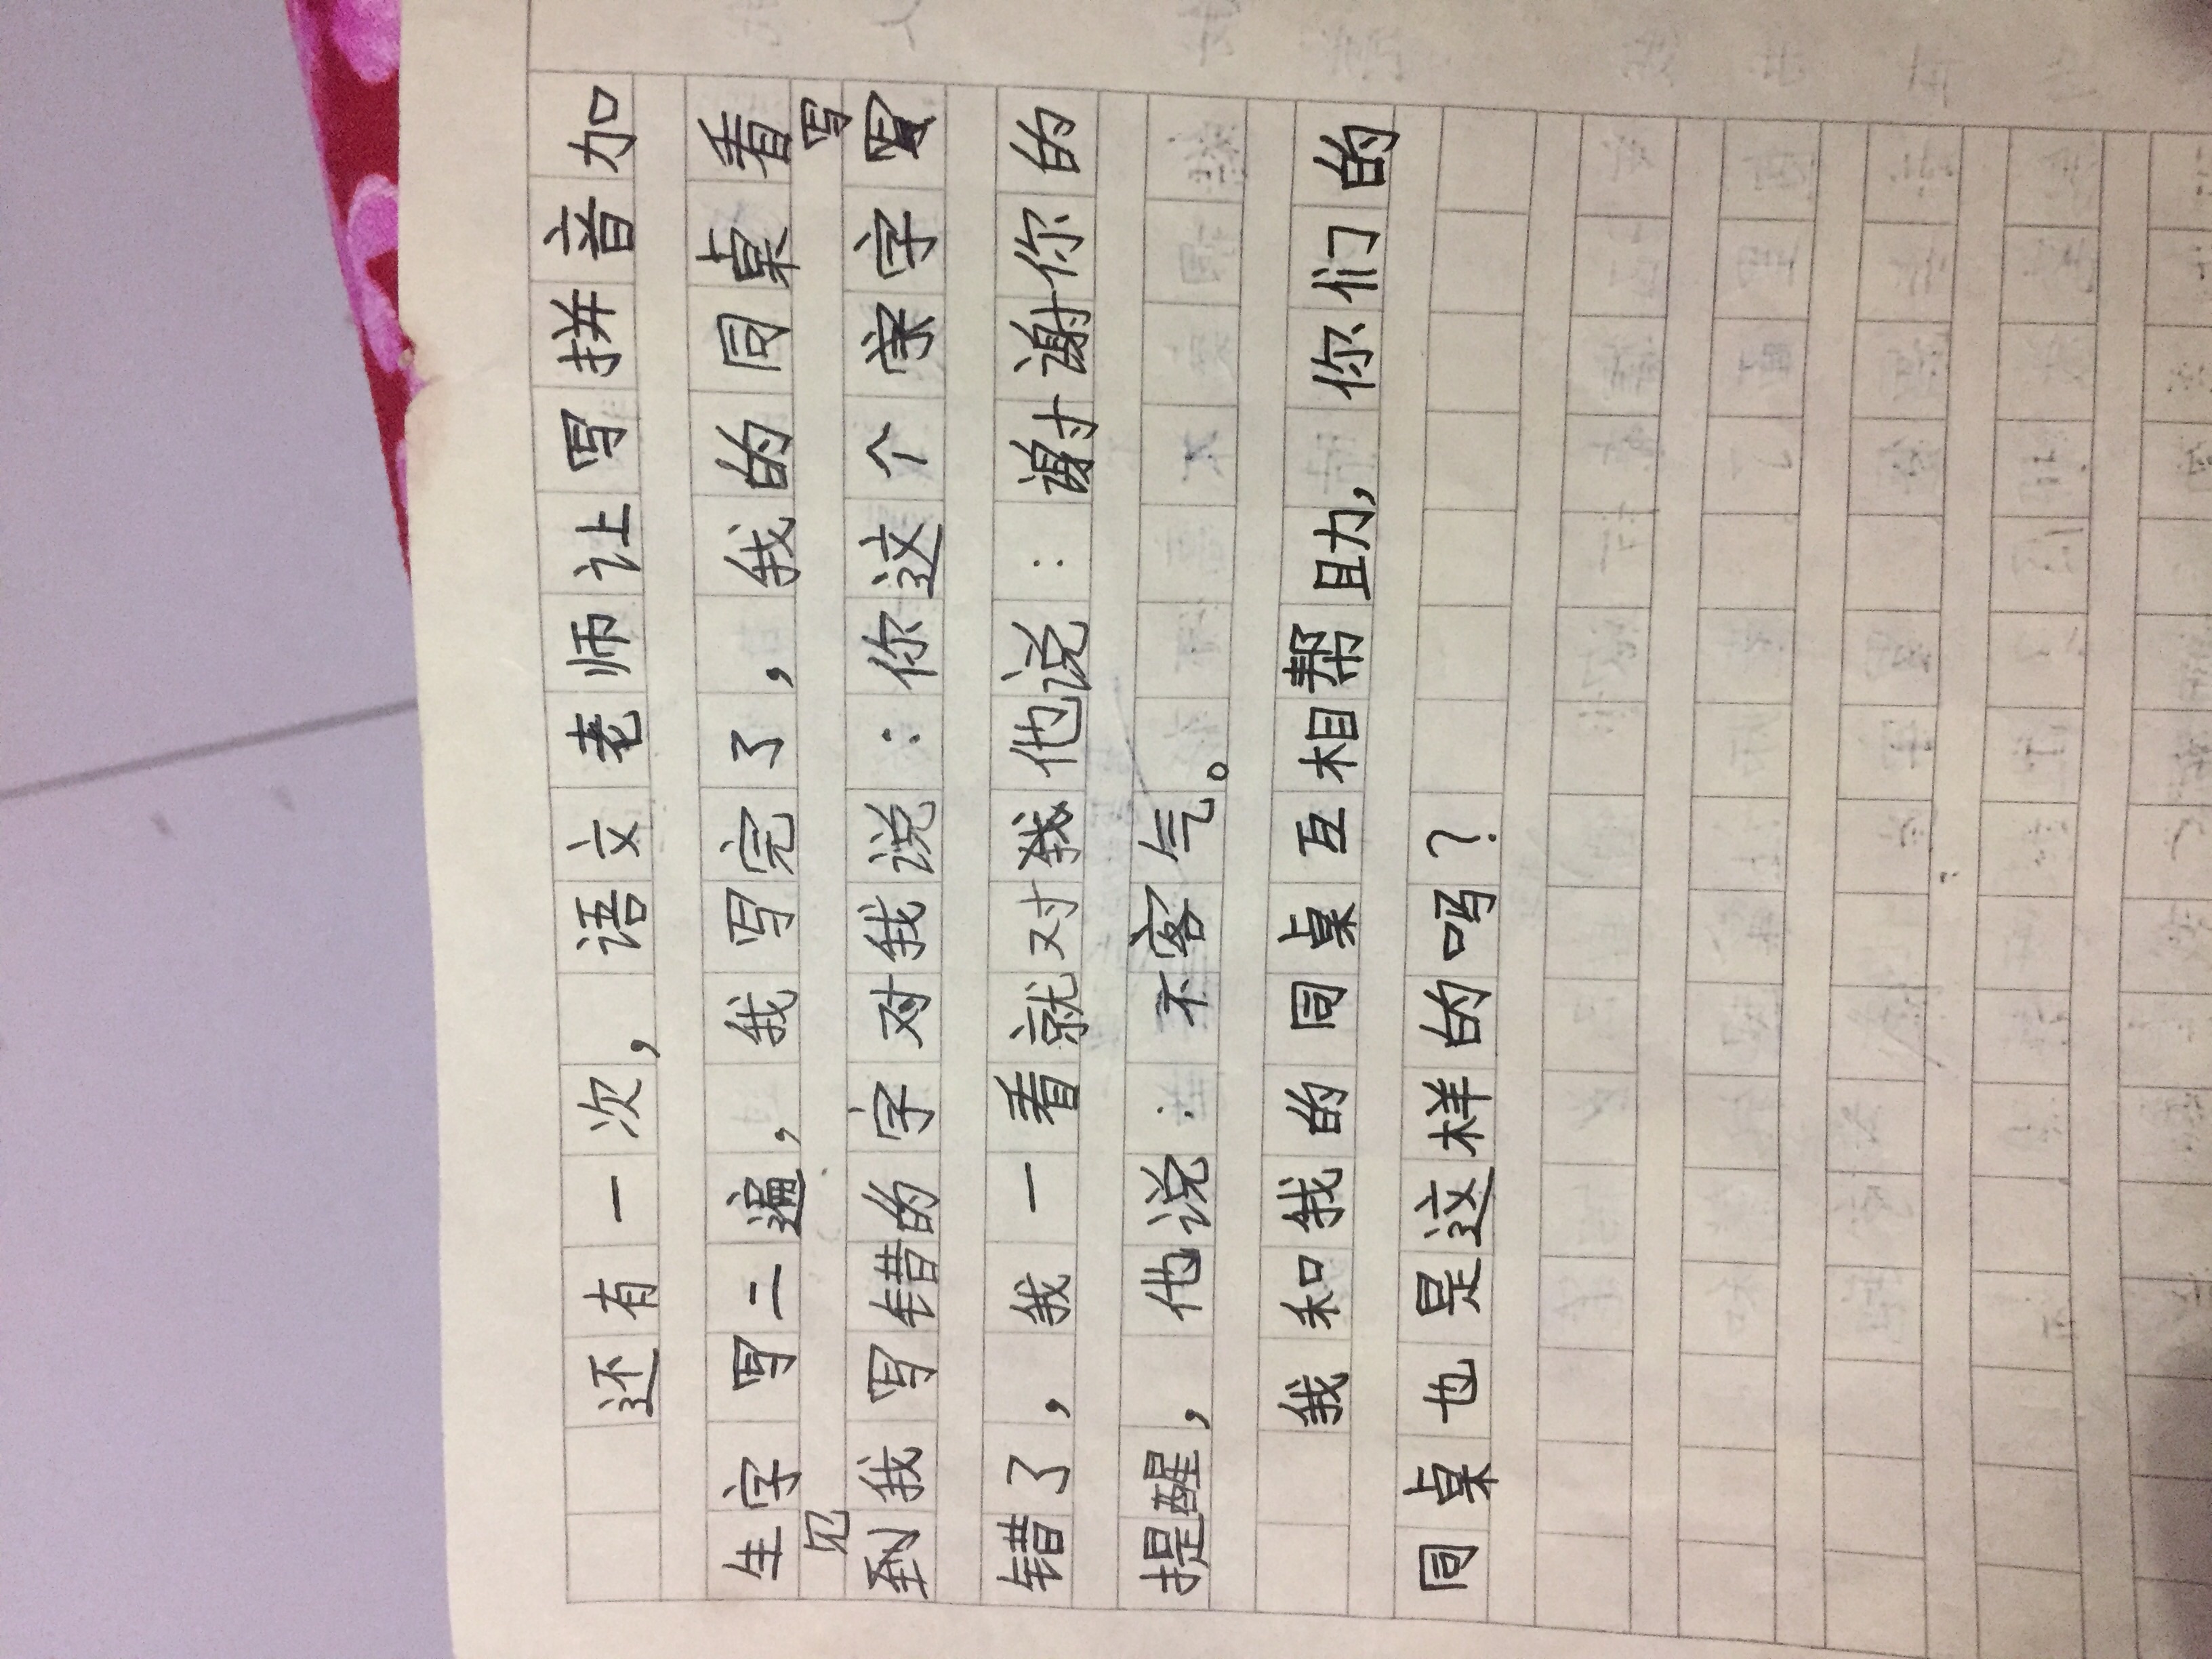 还有一次，语文老师让写拼音加
生字写二遍，我写完了，我的同桌看
见我写错的字对我说：你这个字写
错了，我一看就对他说：谢谢你的
提醒，他说：不客气。
我和我的同桌互相帮助，你们的
同桌也是这样的吗？